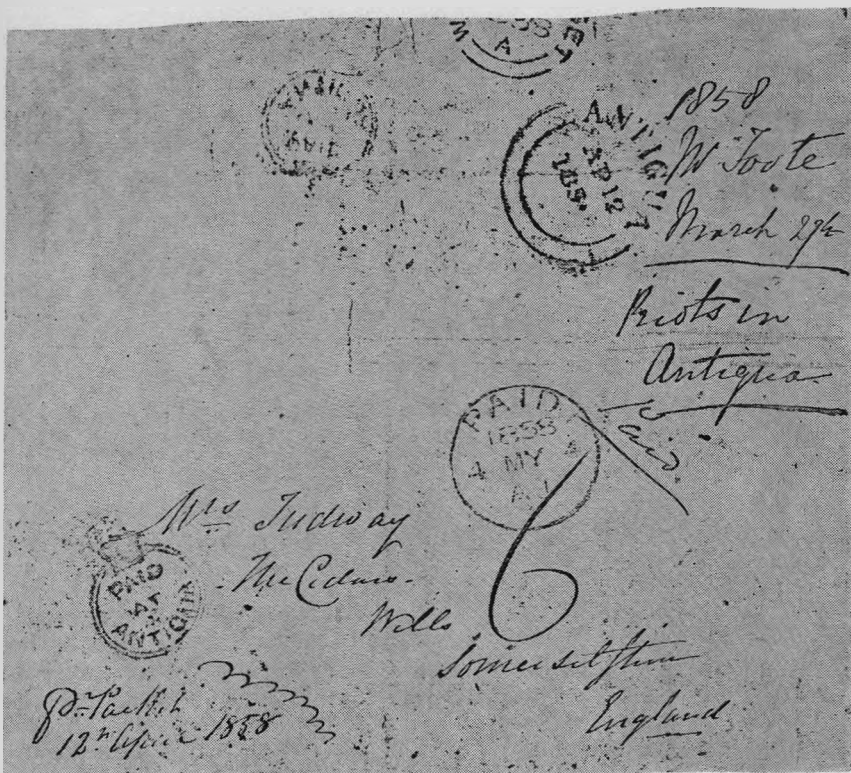 1858
A
ANTIGUA
AP 12
185
1858
Mr Foote
March 27th
Riots in
Antigua
PAID
1858
4 MY 4
Paid
6
Mrs Tudway
The Cedars
Wells
Somersetshire
England
PAID
AT
ANTIGUA
pr Packet
12th April 1858